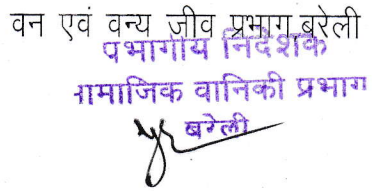 वन एवं वन्य जीव प्रभाग बरेली
प्रभागीय निदेशक
सामाजिक वानिकी प्रभाग
बरेली